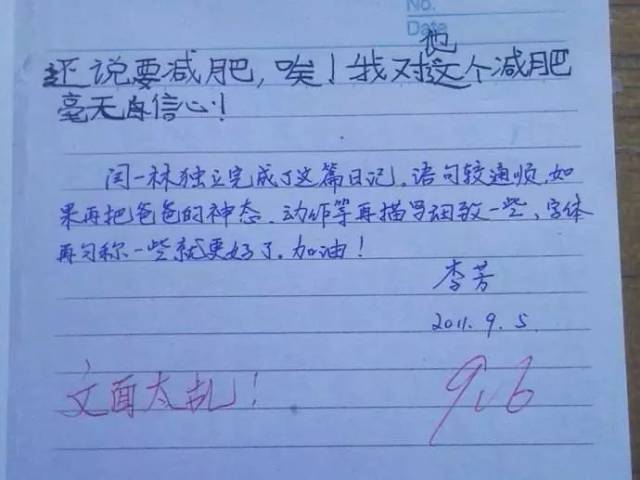 No.
Date
还说要减肥,唉!我对他这个减肥
毫无自信心!
闫一林独立完成了这篇日记。语句较通顺,如
果再把爸爸的神态、动作等再描写细致一些、字体
再匀称一些就更好了。加油!
李芳
2011.9.5.
文面太乱!
9.6